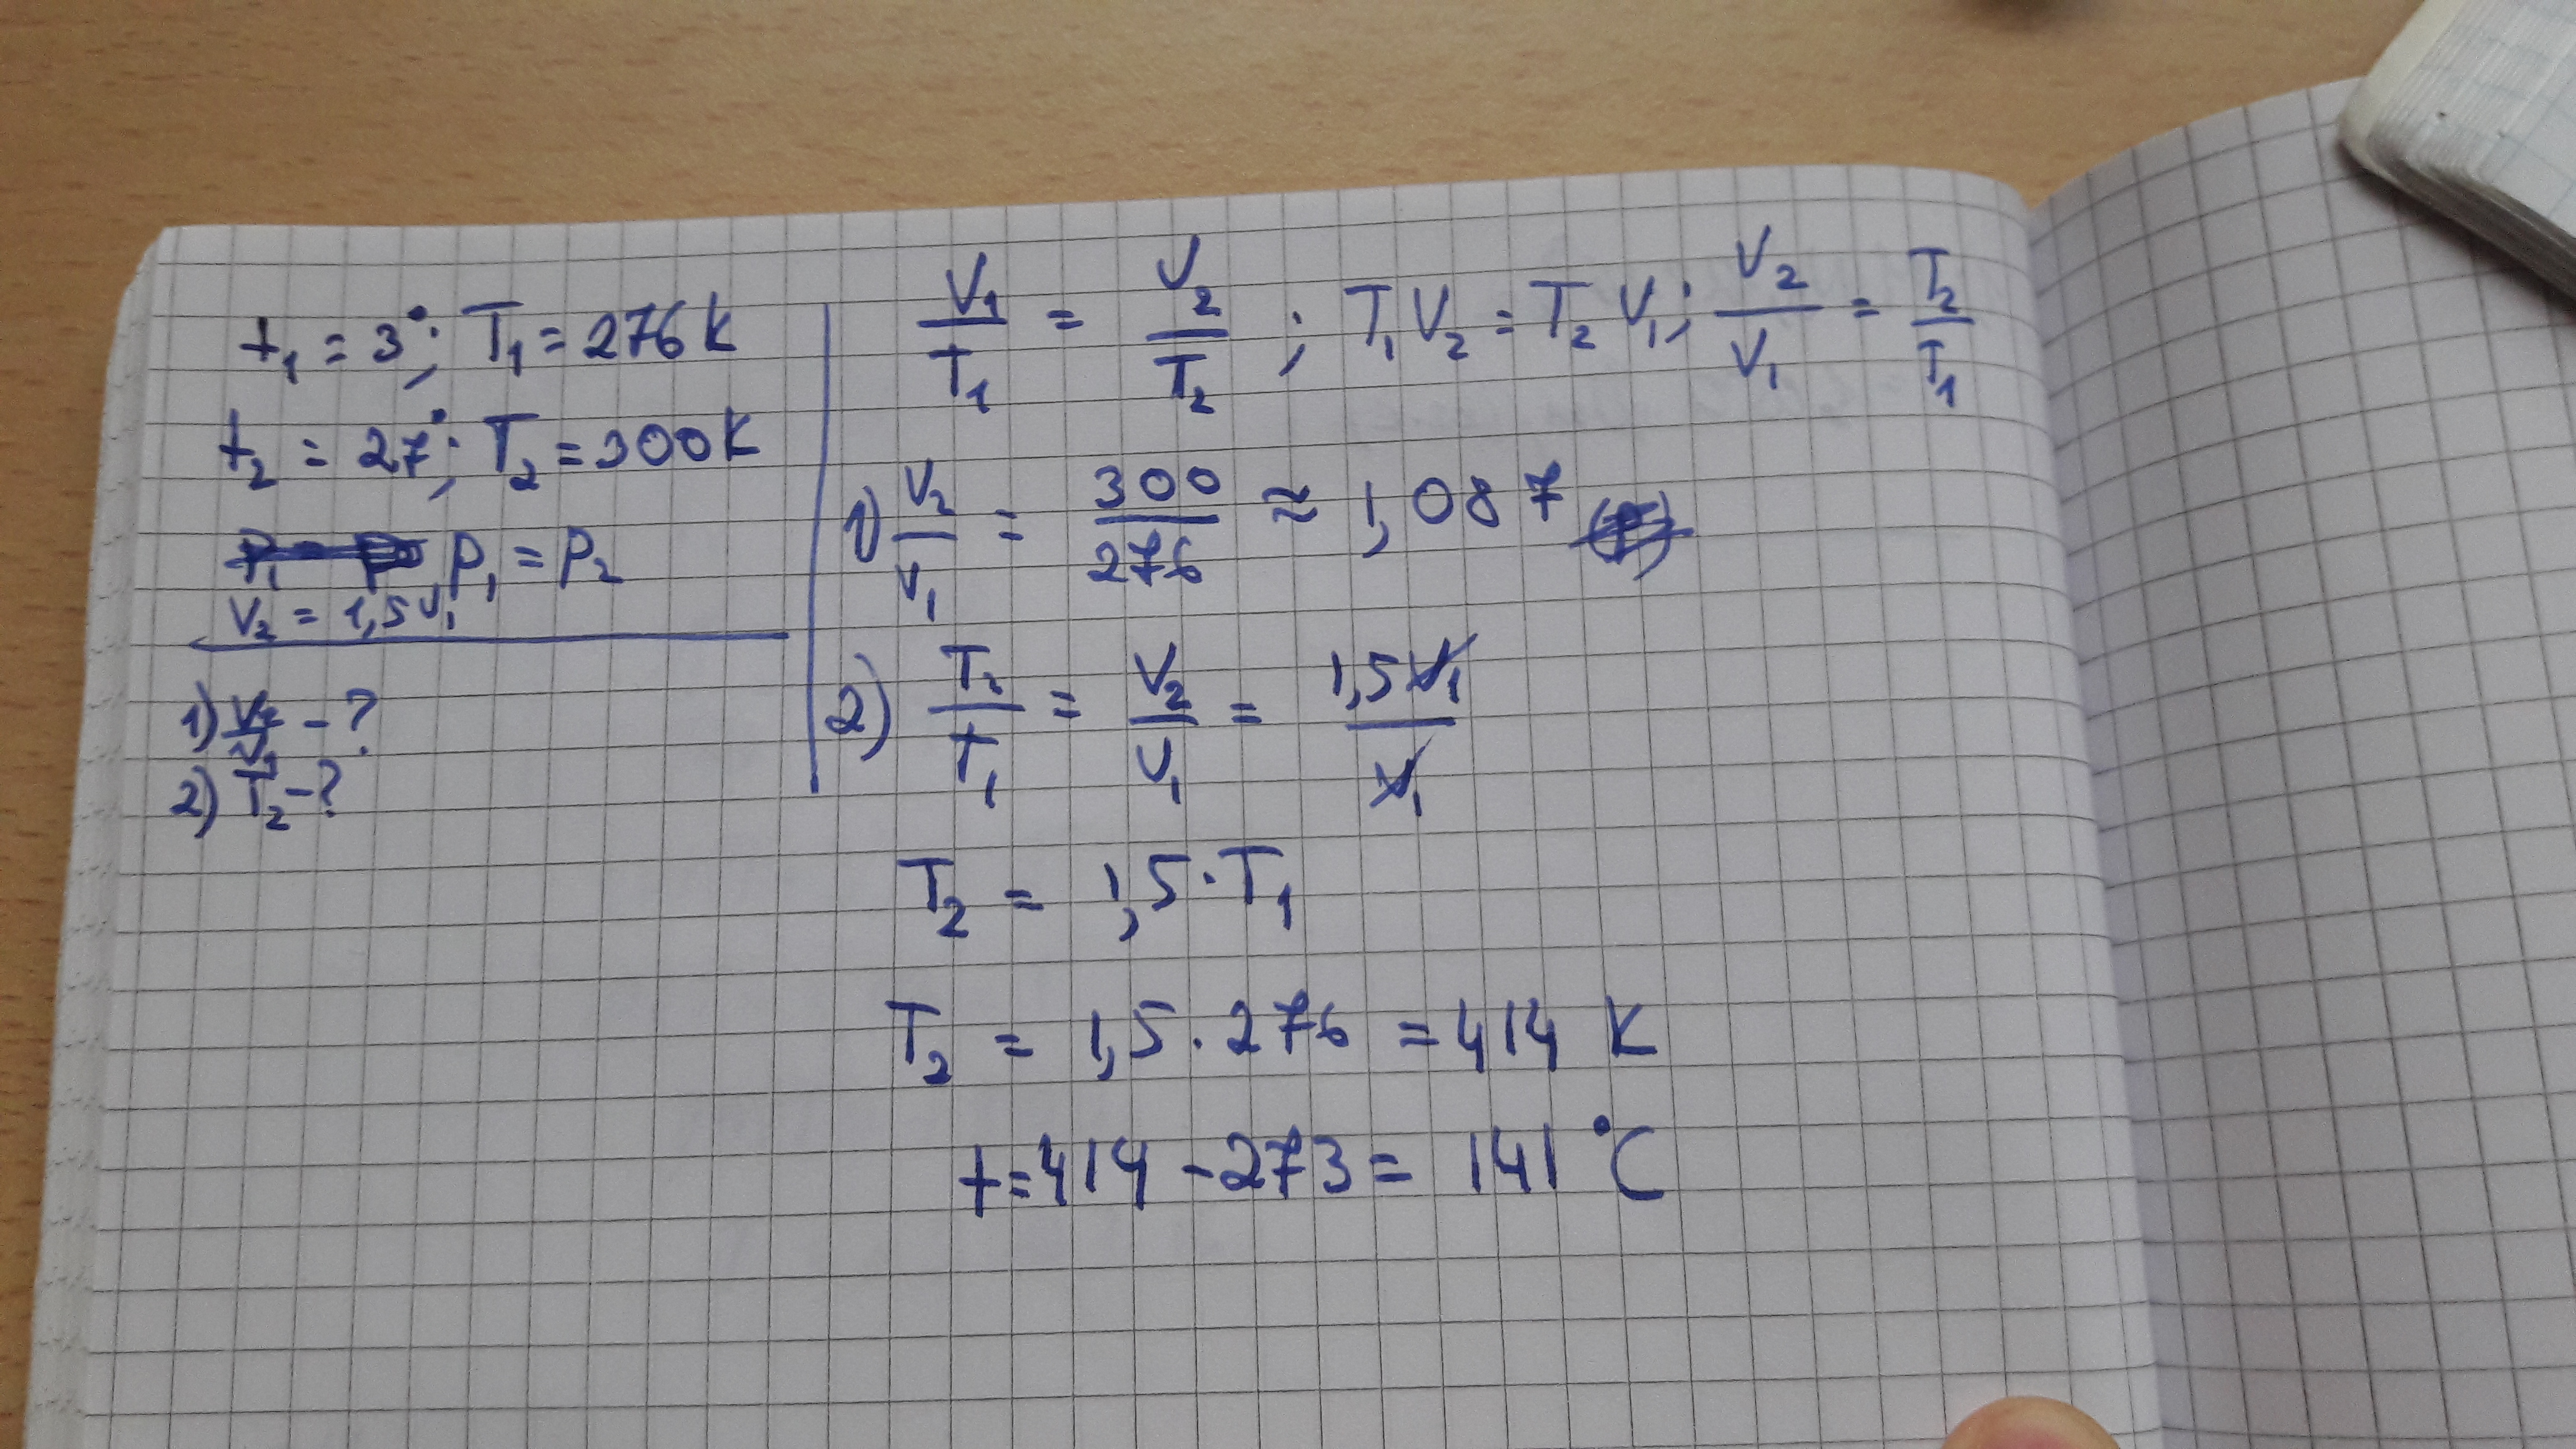 t₁ = 3°; T₁ = 276 K
t₂ = 27°; T₂ = 300 K
p₁ = p₂
V₂ = 1,5 V₁
1) V₂/V₁ - ?
2) T₂ - ?
V₁/T₁ = V₂/T₂ ; T₁V₂ = T₂V₁; V₂/V₁ = T₂/T₁
1) V₂/V₁ = 300/276 ≈ 1,087
2) T₂/T₁ = V₂/V₁ = 1,5V₁/V₁
T₂ = 1,5 · T₁
T₂ = 1,5 · 276 = 414 K
t = 414 - 273 = 141 °C